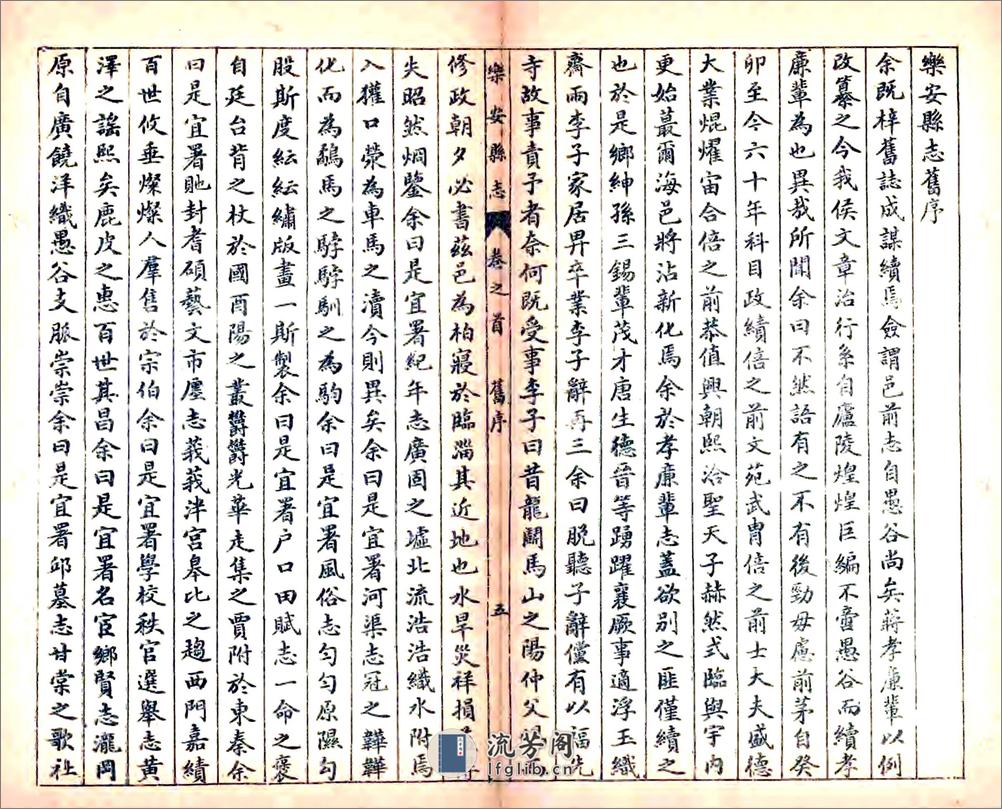 樂安縣志舊序
余既梓舊誌成謀續焉僉謂邑前志自愚谷尚矣蔣孝廉輩以例
改纂之今我侯文章治行系自廬陵煌煌巨編不啻愚谷而續孝
廉輩為也異哉所聞余曰不然語有之不有後勁毋慮前茅自癸
卯至今六十年科目政績倍之前文苑武胄倍之前士大夫盛德
大業焜燿宙合倍之前恭值興朝熙洽聖天子赫然式臨與宇內
更始蕞爾海邑將沾新化焉余於孝廉輩志蓋欲別之匪僅續之
也於是鄉紳孫三錫輩茂才唐生德晉等踴躍襄厥事適浮玉織
齋兩李子家居畀卒業李子辭再三余曰脫聽子辭儻有以福先
寺故事責予者奈何既受事李子曰昔龍鬭馬山之陽仲父
樂安縣志 卷之首 舊序 五
修政朝夕必書茲邑為柏寢於臨淄其近地也水旱災祥損
失昭然烱鑒余曰是宜署紀年志廣固之墟北流浩浩織水附焉
入獲口滎為車馬之瀆今則異矣余曰是宜署河渠志冠之鞾鞾
化而為鷸馬之騂騂馴之為駒余曰是宜署風俗志勻勻原隰勻
股斯度紜紜繡版畫一斯製余曰是宜署户口田賦志一命之褒
自廷台背之杖於國酉陽之叢欝欝光華走集之賈附於東秦余
曰是宜署貤封耆碩藝文市廛志莪莪泮宮皋比之趨西門嘉績
百世攸垂燦人羣售於宗伯余曰是宜署學校秩官選舉志黃
澤之謠熙矣鹿皮之惠百世其昌余曰是宜署名宦鄉賢志瀧岡
原自廣饒洋織愚谷支脈崇崇余曰是宜署邱墓志甘棠之歌社
流芳阁
lfglib.cn